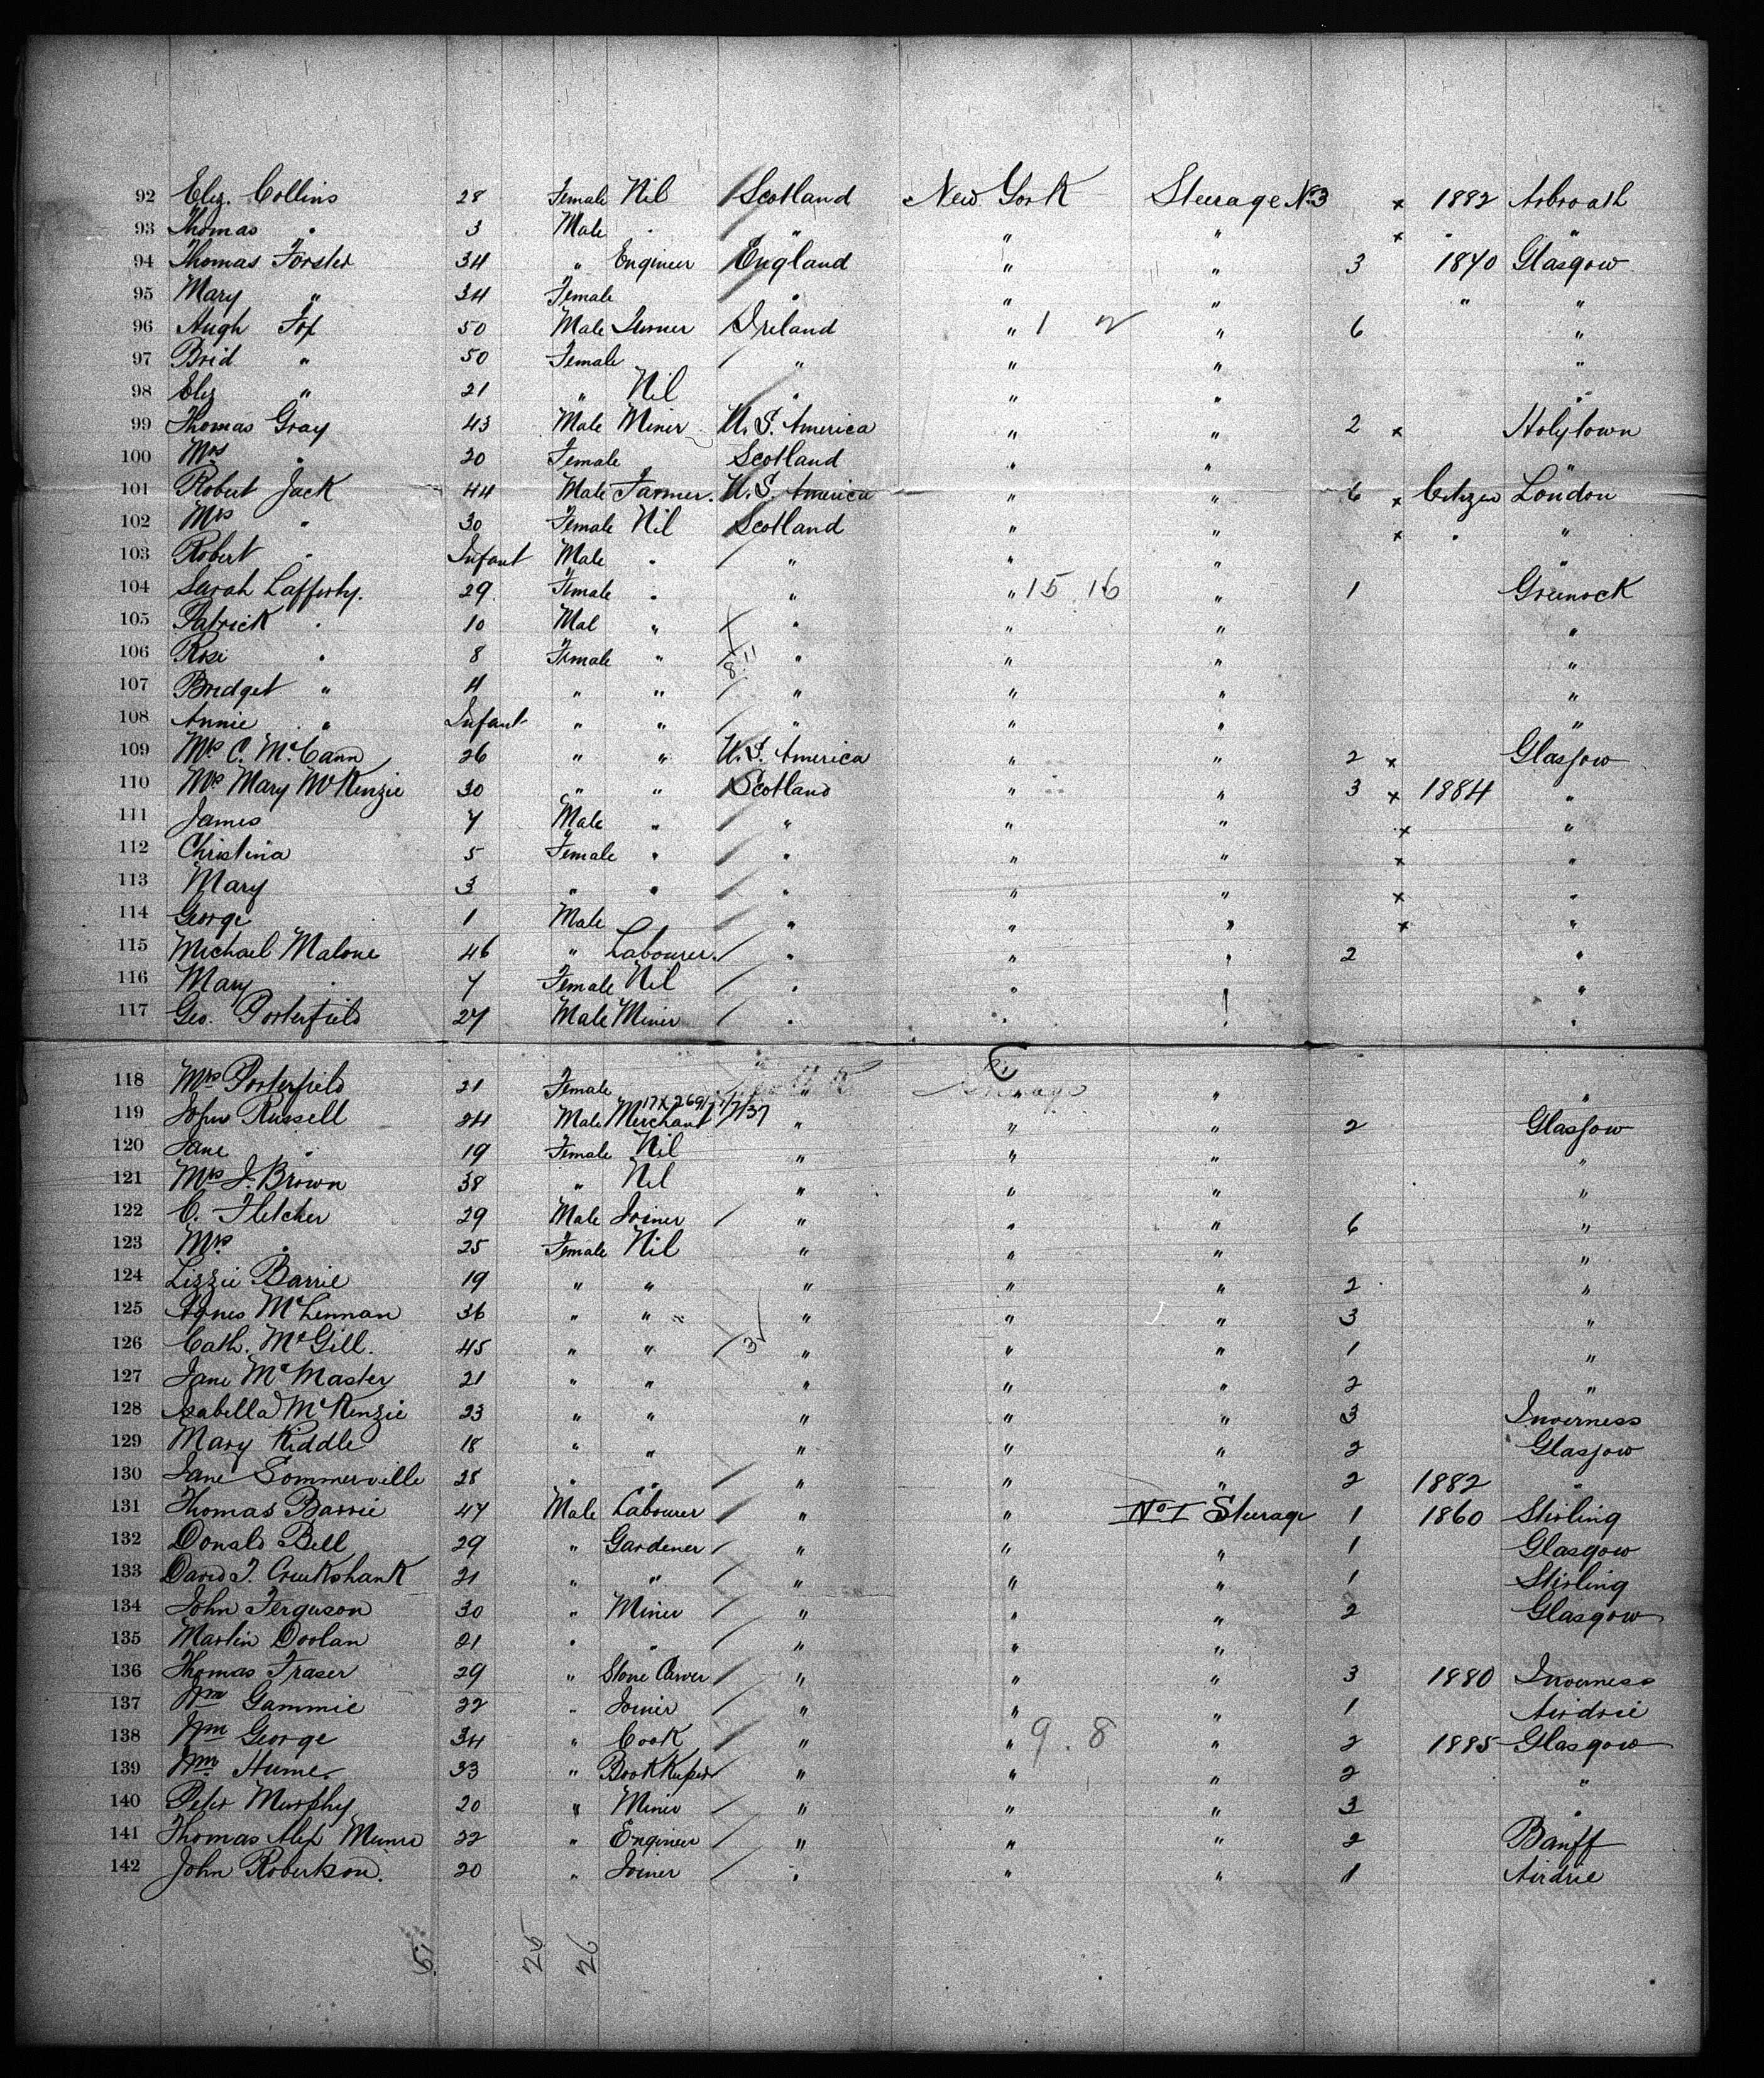 92 Eliz. Collins 28 Female Nil Scotland New York Steerage No 3 x 1882 Arbroath
93 Thomas " 3 Male " " " " x " "
94 Thomas Forster 34 " Engineer England " " 3 1840 Glasgow
95 Mary " 34 Female " " " " "
96 Hugh Fox 50 Male Ireland " 1 2 " 6 "
97 Brid " 50 Female " " " "
98 Eliz " 21 " Nil " " " "
99 Thomas Gray 43 Male Miner U.S. America " " 2 x Holytown
100 Mrs " 30 Female " Scotland " " "
101 Robert Jack 44 Male Farmer. U.S. America " " 6 x Citizen London
102 Mrs " 30 Female Nil Scotland " " x " "
103 Robert " Infant Male " " " " "
104 Sarah Lafferty. 29 Female " " " 15 16 " 1 Greenock
105 Patrick " 10 Mal " " " " "
106 Rose " 8 Female " " " " "
107 Bridget " 4 " " " " " "
108 Annie " Infant " " " " " "
109 Mrs C. McCann 26 " " U.S. America " " 2 x Glasgow
110 Mrs Mary McKenzie 30 " " Scotland " " 3 x 1884 "
111 James 7 Male " " " " x "
112 Christina 5 Female " " " " x "
113 Mary 3 " " " " " x "
114 George 1 Male " " " x "
115 Michael Malone 46 " Labourer. " " " 2 "
116 Mary " 7 Female Nil " " "
117 Geo. Porterfield 27 Male Miner " " "
118 Mrs Porterfield 21 Female " " " "
119 John Russell 24 Male Merchant " " " 2 Glasgow
120 Jane " 19 Female Nil " " " "
121 Mrs J. Brown 38 " Nil " " " "
122 C. Fletcher 29 Male Joiner " " " 6 "
123 Mrs " 25 Female Nil " " " "
124 Lizzie Barrie 19 " " " " " 2 "
125 Agnes McLennan 36 " " " " " 3 "
126 Cath. McGill. 45 " " " " " 1 "
127 Jane McMaster 21 " " " " " 2 "
128 Isabella McKenzie 23 " " " " " 3 Inverness
129 Mary Kiddle 18 " " " " " 2 Glasgow
130 Jane Sommerville 28 " " " " " 2 1882 "
131 Thomas Barrie 47 Male Labourer " " No 1 Steerage 1 1860 Stirling
132 Donald Bell 29 " Gardener " " " 1 Glasgow
133 David T. Cruikshank 21 " " " " " 1 Stirling
134 John Ferguson 30 " Miner " " " 2 Glasgow
135 Martin Doolan 21 " " " " "
136 Thomas Fraser 29 " Stone Carver " " " 3 1880 Inverness
137 Wm Gammie 22 " Joiner " " " 1 Airdrie
138 Wm George 34 " Cook " " 9. 8 " 2 1885 Glasgow
139 Wm Hume 33 " BookKeeper " " " 2 "
140 Peter Murphy 20 " Miner " " " 3 "
141 Thomas Alex Munro 22 " Engineer " " " 2 Banff
142 John Robertson. 20 " Joiner " " " 1 Airdrie
51 25 26